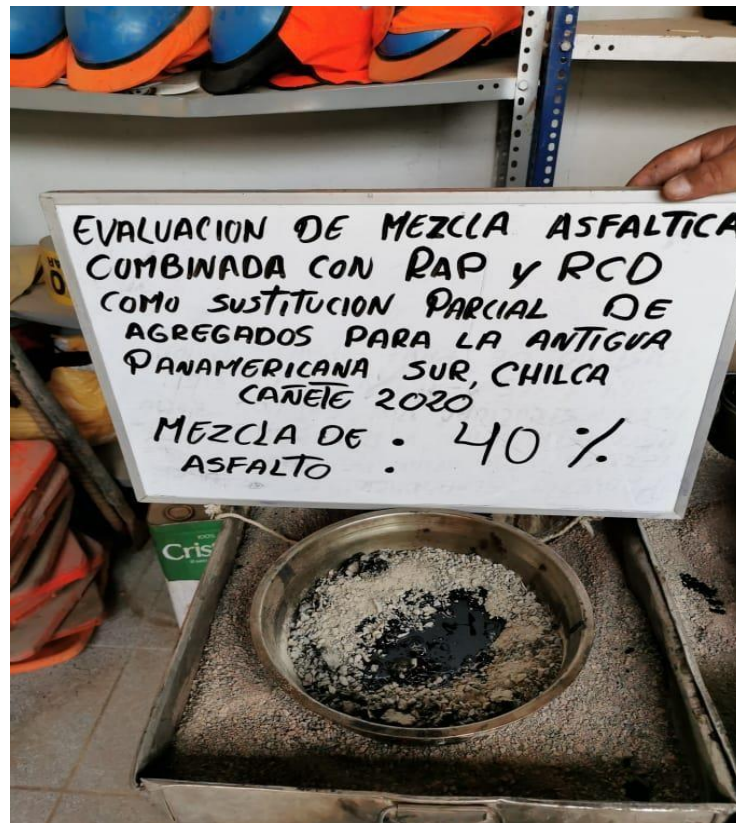 EVALUACION DE MEZCLA ASFALTICA
COMBINADA CON RAP y RCD
COMO SUSTITUCION PARCIAL DE
AGREGADOS PARA LA ANTIGUA
PANAMERICANA SUR, CHILCA
CAÑETE 2020
MEZCLA DE : 40 %
ASFALTO
100%
Cris